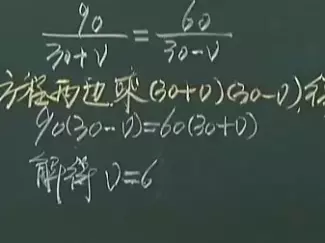 90/(30+v) = 60/(30-v)
方程两边乘(30+v)(30-v),得
90(30-v)=60(30+v)
解得 v=6